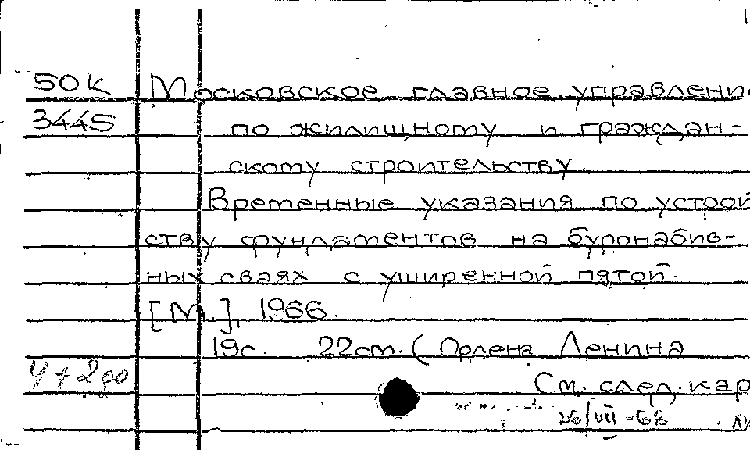 50К Московское главное управлени
3445 по жилищному и граждан-
скому строительству
Временные указания по устрой
ству фундаментов на буронабив-
ных сваях с уширенной пятой.
[М.], 1966.
19с. 22см. (Ордена Ленина
См. след. кар
26/VII-68